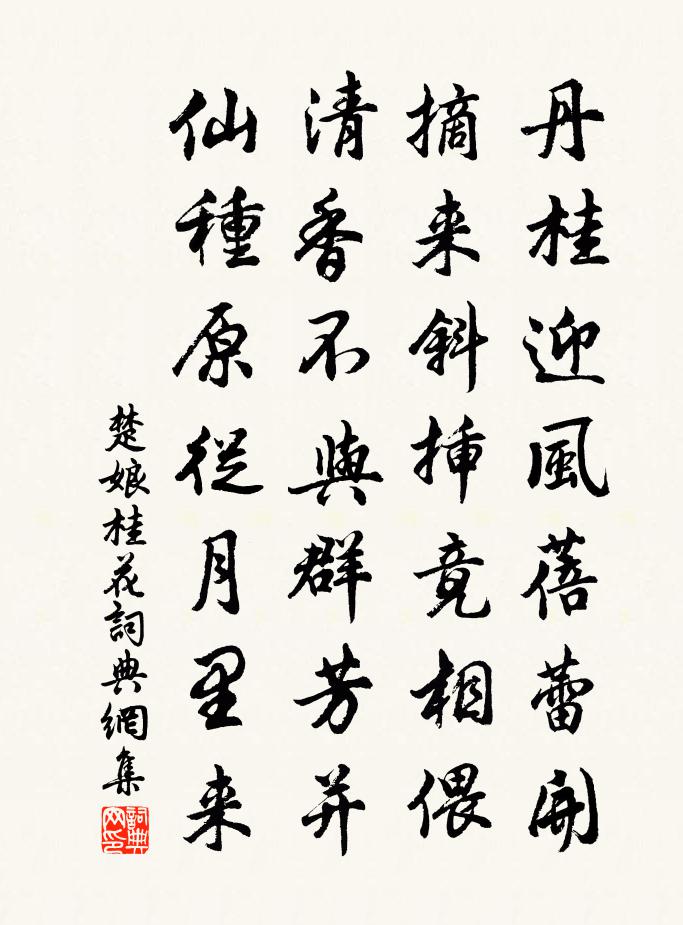 丹桂迎風蓓蕾開
摘来斜挿竟相偎
清香不與群芳并
仙種原從月里来
楚娘桂花詞典網集
詞典網印